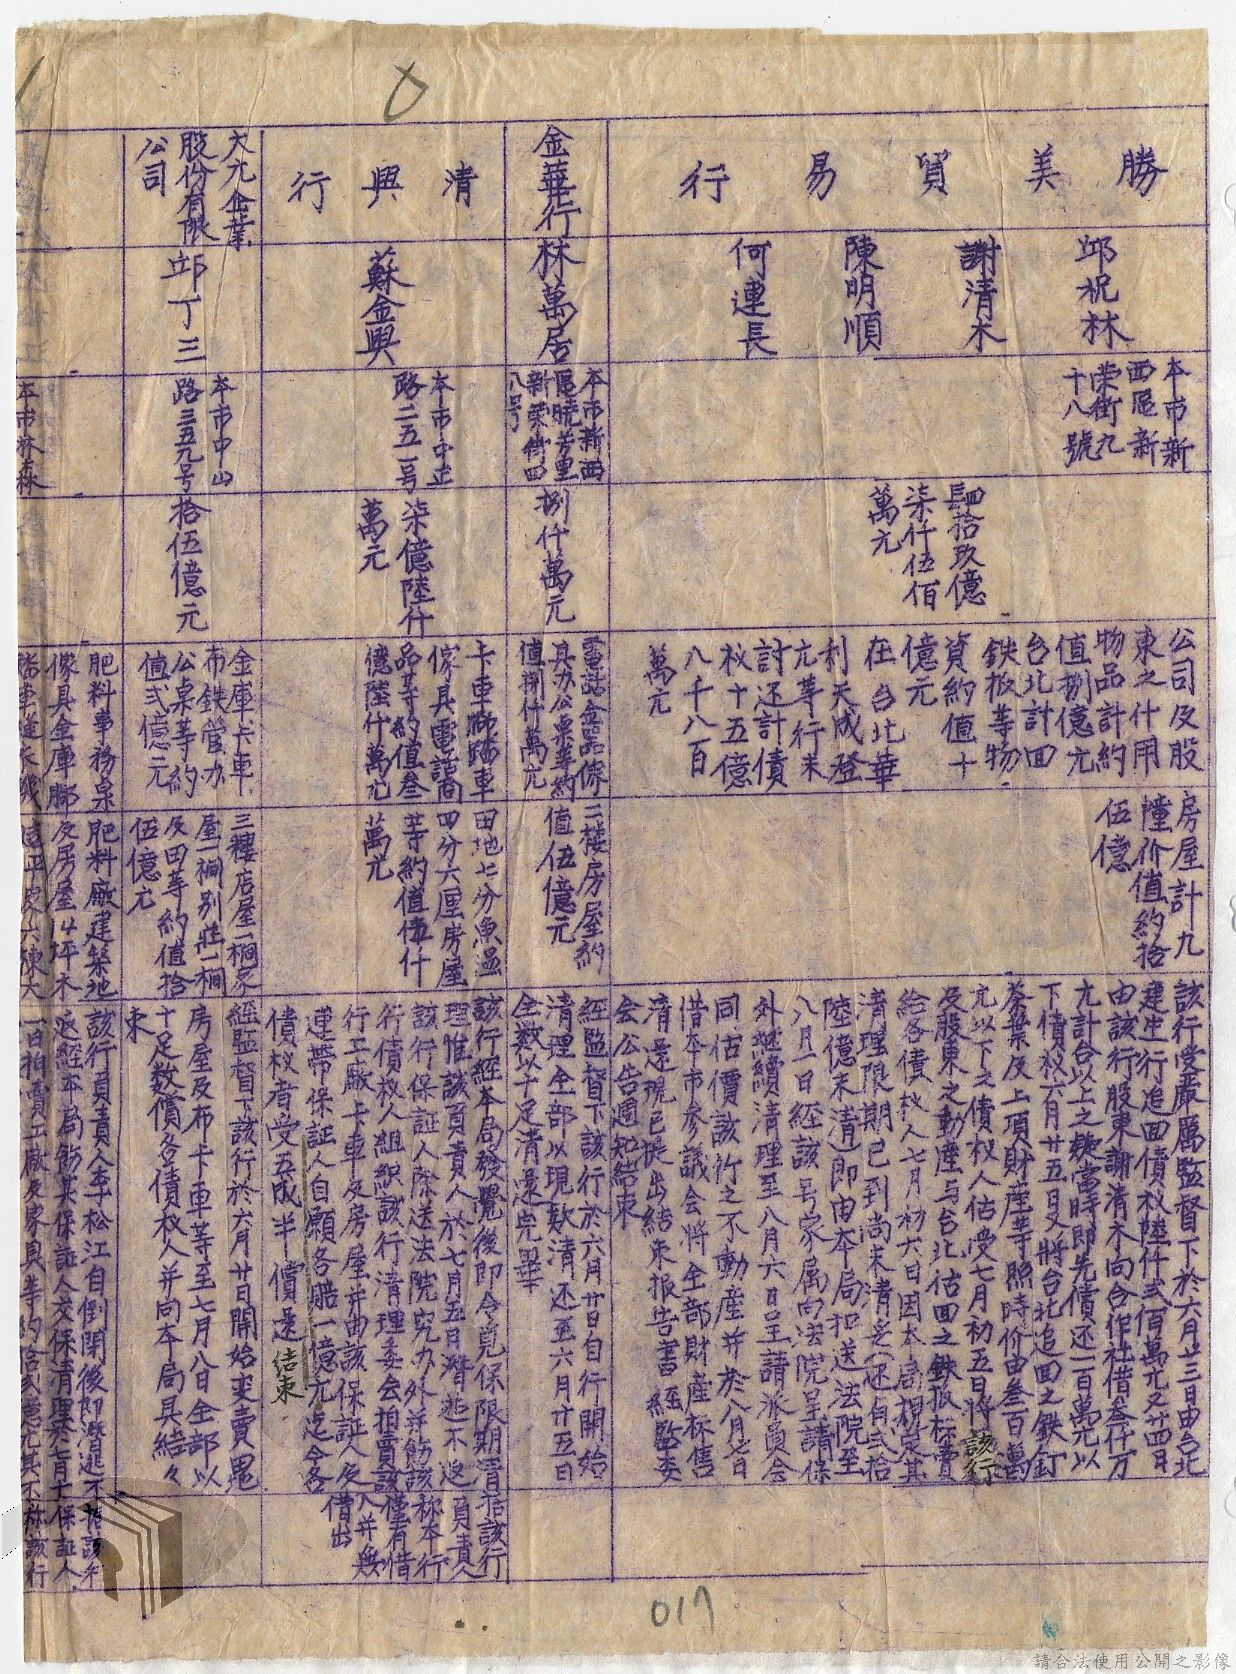 勝美貿易行
邱祝林
謝清木
陳明順
何連長
本市新
西區新
荣街九
十八號
肆拾玖億
柒仟伍佰
萬元
公司及股
東之什用
物品計約
值捌億元
台北計回
鉄板等物
資約值十
億元
在台北華
利天成發
元等行未
討还計債
权十五億
八千八百
萬元
房屋計九
幢价值約拾
伍億
該行受嚴厲監督下於六月廿三日由台北
建生行追回債权陸仟弍佰萬元又廿四日
由該行股東謝清木向合作社借叁仟万
元計合以上之款當時即先償还一百萬元以
下債权六月廿五日又將台北追回之鉄釘
茶葉及上項財產等照時价由叁百萬
元以下之債权人估受七月初五日將該行
及股東之動產与台北估回之鉄板標賣
給各債权人七月初六日因本局規定其
清理限期已到尚未清楚还有弍拾
陸億未清即由本局扣送法院至
八月一日經該号家属向法院呈請保
外継續清理至八月六日呈請派員会
同估價該行之不動產并於八月七日
借本市參議会將全部財產标售
清還現已提出結束报告書經監委
会公告週知結束
金華行
林萬居
本市新西
區曉芳里
新荣街四
八号
捌仟萬元
電話金器傢
具办公桌等約
值捌仟萬元
二楼房屋約
值伍億元
經監督下該行於六月廿日自行開始
清理全部以現款清还至六月廿五日
全数以十足清還完畢
清興行
蘇金興
本市中正
路二五一号
柒億陸仟
萬元
卡車腳踏車
傢具電話商
品等約值叁
億陸仟萬元
田地七分魚溫
四分六厘房屋
等約值伍仟
萬元
該行經本局發覺後即令覓保限期清
理惟該負責人於七月五日潛逃不返
該行保証人除送法院究办外并飭該
行債权人組織該行清理委会拍賣該
行工廠卡車及房屋并由該保証人及
連帶保証人自願各賠一億元迄今各
債权者受五成半償還 結束
据該行
負責人
称本行
僅有借
入并無
借出
大元企業
股份有限
公司
邱丁三
本市中山
路三五九号
拾伍億元
金庫卡車
布鉄管办
公桌等約
值弍億元
三樓店屋一棟家
屋一棟别莊一棟
及田等約值拾
伍億元
經監督下該行於六月廿日開始変賣
房屋及布卡車等至七月八日全部以
十足数償各債权人并向本局具結
束
本市林森
肥料事務桌
傢具金庫腳
肥料廠建築地
及房屋4坪木
該行負責人李松江自倒閉後即潛逃不
返經本局飭其保証人交保清理至七月十
一日拍賣工廠及家具等約拾弍億元其不
据該行
保証人
称該行
017
請合法使用公開之影像